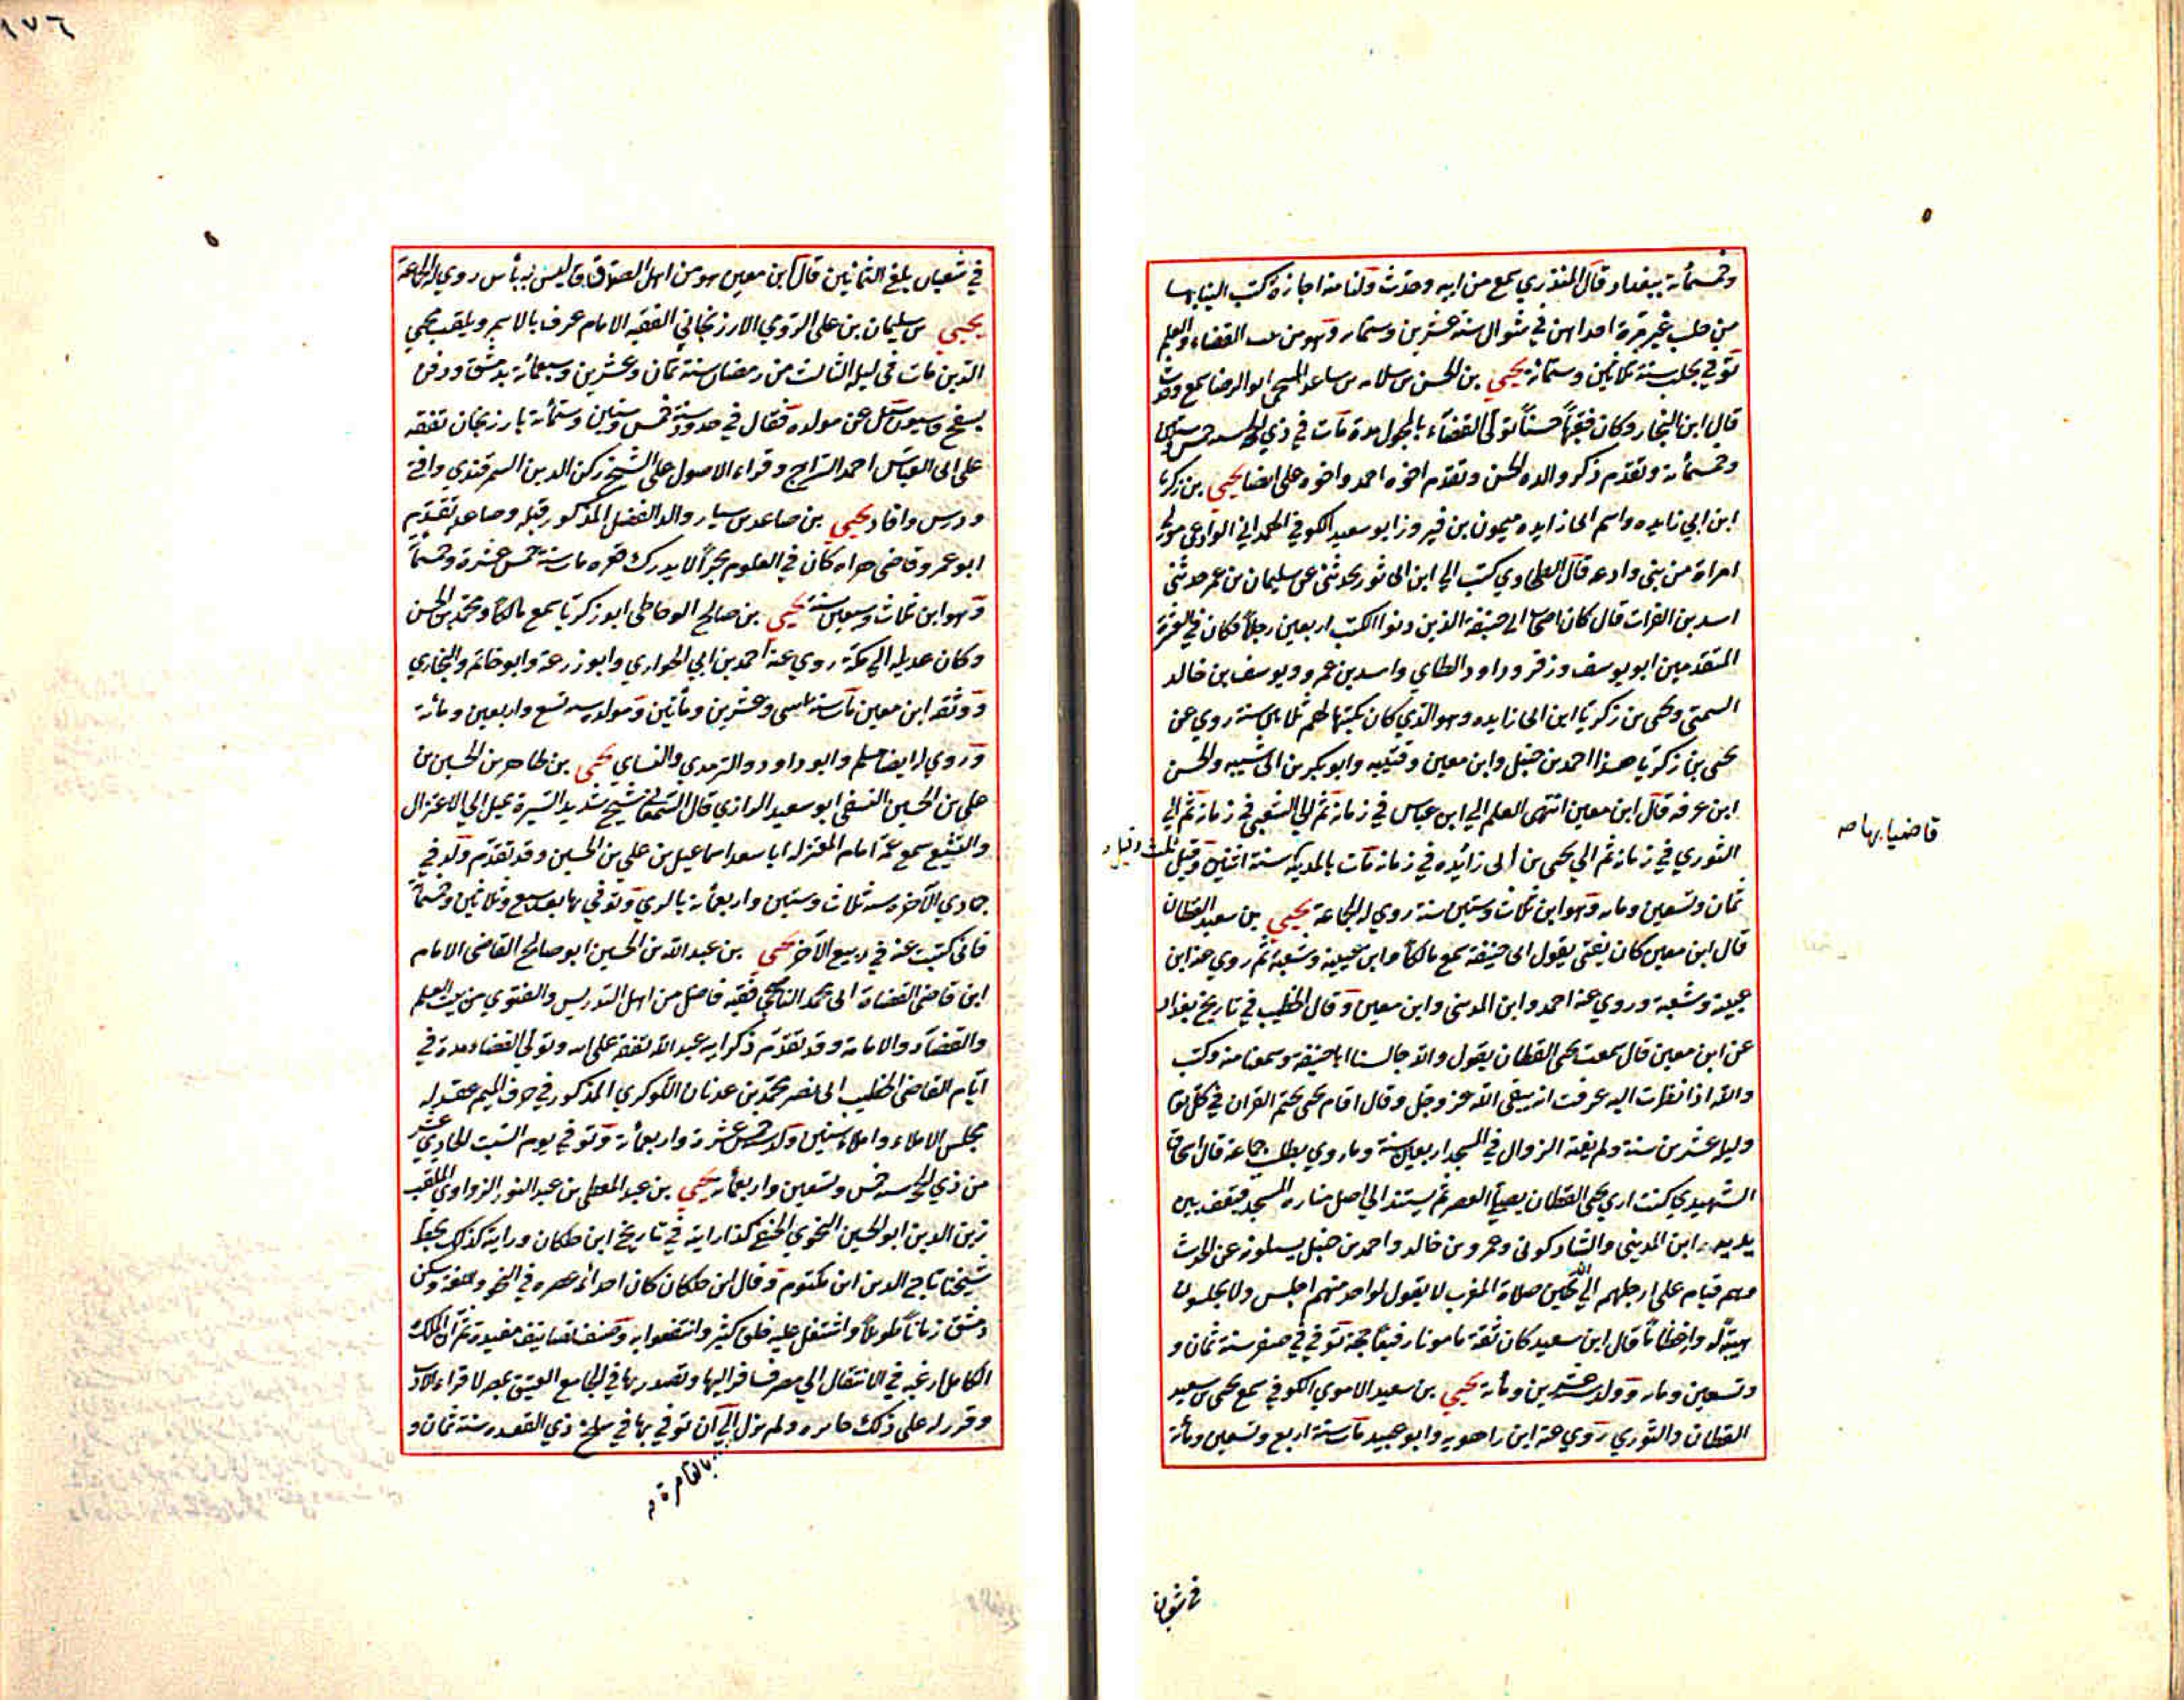 وخمسمائة ببغداد قال المنذري سمع من ابيه وحدث ولنا منه اجازة كتب الينا بها
من حلب غير مرة احداهن في شوال سنة عشرين وستمائة وهو من بيت القضاء والعلم
توفي بحلب سنة ثلاثين وستمائة يحيي بن الحسن بن سلامه بن ساعد المنبجي ابو الرضا سمع وحدث
قال ابن النجار وكان فقيها حسنا تولى القضاء بالجول مدة مات في ذي الحجة سنة خمس
وخمسمائة وتقدم ذكر والده الحسن وتقدم اخوه احمد واخوه على ايضا يحيي بن زكريا
ابن ابي زايده واسم ابى زايده ميمون بن فيروز ابو سعيد الكوفي الهمداني الوادعى مولى
امراة من بنى وادعه قال الطحاوي كتب الى ابن ابى ثور يحدثنى عن سليمان بن عمر حدثنى
اسد بن الفرات قال كان اصحاب ابى حنيفة الذين دونوا الكتب اربعين رجلا فكان في العشرة
المتقدمين ابو يوسف وزفر وداود الطاي واسد بن عمرو ويوسف بن خالد
السمتى ويحيى بن زكريا ابن ابى زايده وهو الذي كان يكتبها لهم ثلاثين سنة روي عن
يحيى بن زكريا هذا احمد بن حنبل وابن معين وقتيبه وابو بكر بن ابى شيبه والحسن
ابن عرفه قال ابن معين انتهى العلم الي ابن عباس في زمانه ثم الي الشعبي في زمانه ثم الي
الثوري في زمانه ثم الي يحيى بن ابى زائده في زمانه مات بالمدينه سنة اثنين وقيل ثلث وقيل
ثمان وتسعين ومائه وهو ابن ثلاث وستين سنة روي له الجماعة يحيي بن سعيد القطان
قال ابن معين كان يفتى بقول ابى حنيفة سمع مالكا وابن عيينة وشعبة ثم روي عنه ابن
عيينة وشعبة وروي عنه احمد وابن المدينى وابن معين وقال الخطيب في تاريخ بغداد
عن ابن معين قال سمعت يحيى القطان يقول والله جالسنا ابا حنيفة وسمعنا منه وكنت
والله اذا نظرت اليه عرفت انه يتقى الله عز وجل وقال اقام يحيى يختم القران في كل يوم
وليلة عشرين سنة ولم يفته الزوال في المسجد اربعين سنة وما روي يطلب جماعة قال اسحاق
الشهيدي كنت اري يحيى القطان يصلي العصر ثم يستند الي اصل مناره المسجد فيقف بين
يديه ابن المدينى والشاذكونى وعمرو بن خالد واحمد بن حنبل يسالونه عن الحديث
وهم قيام على ارجلهم الي ان تحين صلاة المغرب لا يقول لواحد منهم اجلس ولا يجلسون
هيبة له واعظاما قال ابن سعيد كان ثقة مامونا رفيعا حجة توفي في صفر سنة ثمان و
وتسعين ومائه وولد سنة عشرين ومائة يحيي بن سعيد الاموي الكوفي سمع يحيى بن سعيد
القطان والثوري روي عنه ابن راهويه وابو عبيد مات سنة اربع وتسعين ومائة
قاضيا بها صح
في شعبان
١٧٦
في شعبان بلغ الثمانين قال ابن معين هو من اهل الصدق ليس به بأس روي له الجماعة
يحيي بن سليمان بن على الرومي الارزنجاني الفقيه الامام عرف بالاسمر ويلقب محيي
الدين مات في ليلة الثالث من رمضان سنة ثمان وعشرين وسبعمائة بدمشق ودفن
بسفح قاسيون سئل عن مولده فقال في حدود سنة خمس وستين وستمائة بارزنجان تفقه
على ابى العباس احمد السراج وقراء الاصول على الشيخ ركن الدين السمرقندي وافتى
ودرس وافاد يحيي بن صاعد بن سيار والد الفضل المذكور قبله وصاعد تقدم
ابو عمرو قاضى هراه كان في العلوم بحرا لا يدرك قعره مات سنة خمس عشرة وخمسمائة
وهو ابن ثلاث وسبعين سنة يحيي بن صالح الوحاظى ابو زكريا سمع مالكا ومحمد بن الحسن
وكان عديله الي مكة روي عنه احمد بن ابي الحواري وابو زرعة وابو حاتم والبخاري
ووثقه ابن معين مات سنة اثنين وعشرين ومأتين ومولده سنة تسع واربعين ومائة
وروي له ايضا مسلم وابو داود والترمدي والنساي يحيى بن طاهر بن الحسين بن
على بن الحسين النسفى ابو سعيد الرازي قال السمعاني شيخ شديد السيرة يميل الي الاعتزال
والتشيع سمع عمه امام المعتزله ابا سعد اسماعيل بن علي بن الحسين وقد تقدم ولد في
جمادي الآخرة سنة ثلاث وستين واربعمائة بالري وتوفي بها بعد سبع وثلاثين وخمسمائة
فانى كتبت عنه في ربيع الآخر يحيى بن عبد الله بن الحسين ابو صالح القاضى الامام
ابن قاضى القضاة ابى محمد الناصحي فقيه فاضل من اهل التدريس والفتوي من بيت العلم
والقضاء والامامة وقد تقدم ذكر ابيه عبد الله تفقه على ابيه وتولى القضاء مدة في
ايام القاضى الخطيب ابى نصر محمد بن عدنان الكوكري المذكور في حرف الميم عقد له
مجلس الاملاء واملاء سنين ولد سنة خمس عشرة واربعمائة وتوفي يوم السبت الحادي عشر
من ذي الحجة سنة خمس وتسعين واربعمائة يحيي بن عبد المعطى بن عبد النور الزواوي الملقب
زين الدين ابو الحسين النحوي الحنفي كذا رايته في تاريخ ابن خلكان ورايته كذلك بخط
شيخنا تاج الدين ابن مكتوم وقال ابن خلكان كان احد ائمة عصره في النحو واللغة وسكن
دمشق زمانا طويلا واشتغل عليه خلق كثير وانتفعوا به وصنف تصانيف مفيدة ثم ان الملك
الكامل رغبه في الانتقال الي مصر فسافر اليها وتصدر بها في الجامع العتيق بمصر لاقراء الادب
وقرر له على ذلك جاريه ولم يزل الي ان توفي بها في سلخ ذي القعدة سنة ثمان و
بالقاهرة